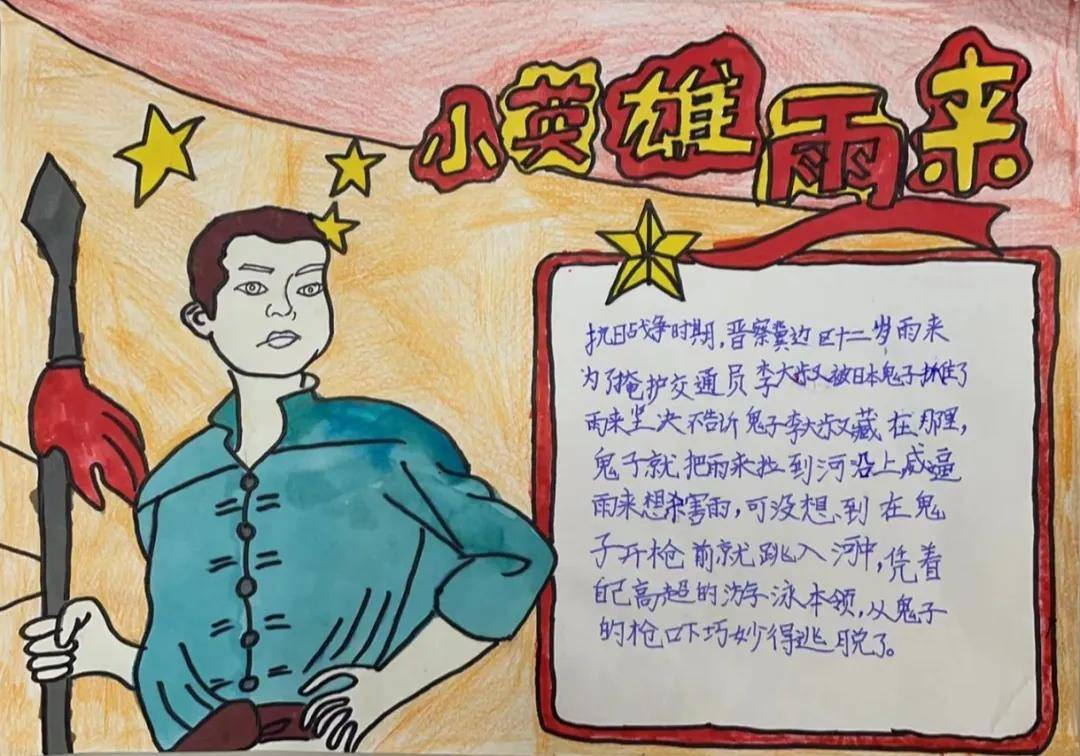 小英雄雨来
抗日战争时期，晋察冀边区十二岁雨来
为了掩护交通员李大叔又被日本鬼子抓住了
雨来坚决不告诉鬼子李大叔藏在那里，
鬼子就把雨来拉到河沿上威逼
雨来想杀害雨，可没想到在鬼
子开枪前就跳入河中，凭着
自己高超的游泳本领，从鬼子
的枪口下巧妙得逃脱了。